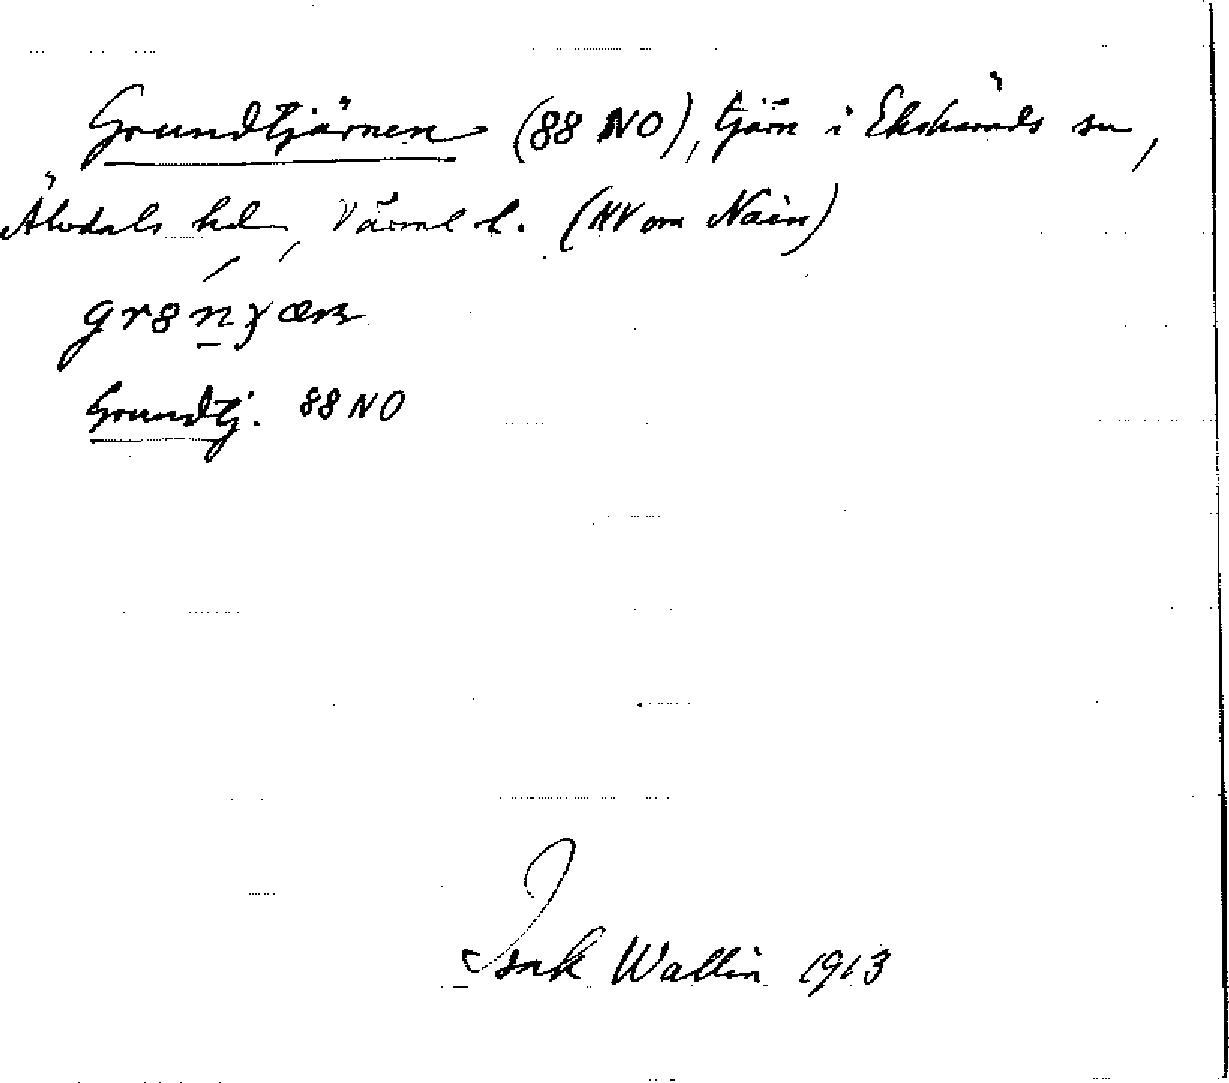 Grundtjärnen (88 NO), tjärn i Ekshärads sn,
Älvdals hd, Värml. l. (NV om Nain)
Grundtj. 88 NO
Isak Wallin 1913